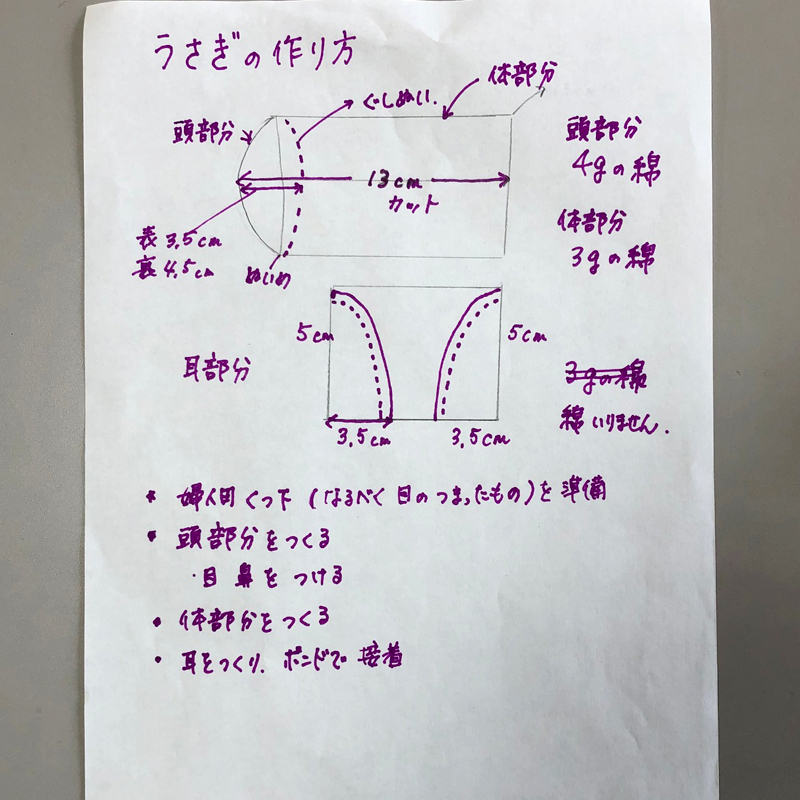 うさぎの作り方
体部分
ぐしぬい.
頭部分
13cm
カット
表 3.5cm
裏 4.5cm
ぬいめ
頭部分
4gの綿
体部分
3gの綿
5cm
5cm
耳部分
3.5cm
3.5cm
3gの綿
綿いりません.
* 婦人用くつ下(なるべく目のつまったもの)を準備
• 頭部分をつくる
・目 鼻をつける
• 体部分をつくる
• 耳をつくり. ボンドで接着